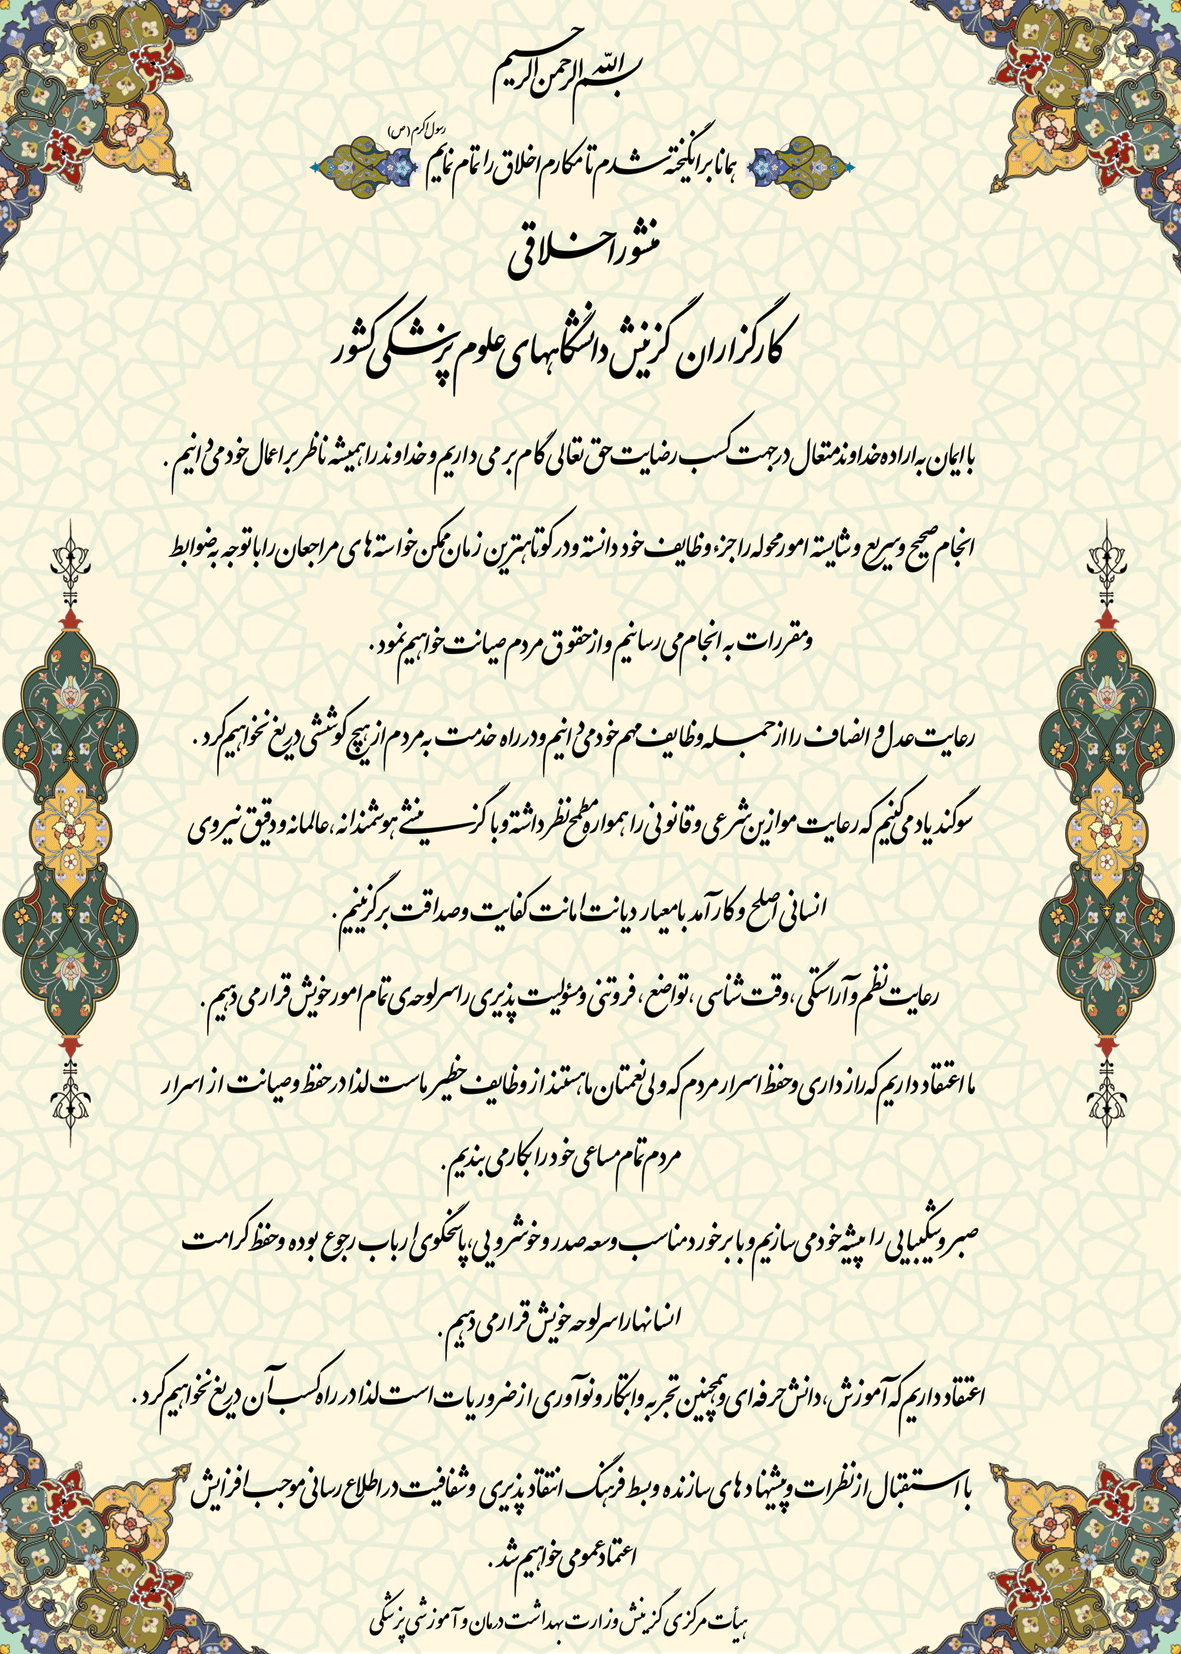 بسم الله الرحمن الرحیم
رسول اکرم (ص)
همانا برانگیخته شدم تا مکارم اخلاق را تمام نمایم
منشور اخلاقی
کارگزاران گزینش دانشگاههای علوم پزشکی کشور
با ایمان به اراده خداوند متعال در جهت کسب رضایت حق تعالی گام بر می داریم و خداوند را همیشه ناظر بر اعمال خود می دانیم .
انجام صحیح و سریع و شایسته امور محوله را جزء وظایف خود دانسته و در کوتاهترین زمان ممکن خواسته های مراجعان را با توجه به ضوابط
و مقررات به انجام می رسانیم و از حقوق مردم صیانت خواهیم نمود .
رعایت عدل و انصاف را از جمله وظایف مهم خود می دانیم و در راه خدمت به مردم از هیچ کوششی دریغ نخواهیم کرد .
سوگند یاد می کنیم که رعایت موازین شرعی و قانونی را همواره مطمح نظر داشته و با گزینشی هوشمندانه ، عالمانه و دقیق نیروی
انسانی اصلح و کارآمد با معیار دیانت امانت کفایت و صداقت برگزینیم .
رعایت نظم و آراستگی ، وقت شناسی ، تواضع ، فروتنی و مسؤلیت پذیری را سرلوحه ی تمام امور خویش قرار می دهیم .
ما اعتقاد داریم که راز داری و حفظ اسرار مردم که ولی نعمتان ما هستند از وظایف خطیر ماست لذا در حفظ و صیانت از اسرار
مردم تمام مساعی خود را بکار می بندیم .
صبر و شکیبایی را پیشه خود می سازیم و با برخورد مناسب وسعه صدر و خوشرویی ، پاسخگوی ارباب رجوع بوده و حفظ کرامت
انسانها را سرلوحه خویش قرار می دهیم .
اعتقاد داریم که آموزش ، دانش حرفه ای و همچنین تجربه و ابتکار و نوآوری از ضروریات است لذا در راه کسب آن دریغ نخواهیم کرد .
با استقبال از نظرات و پیشنهاد های سازنده و بسط فرهنگ انتقاد پذیری و شفافیت در اطلاع رسانی موجب افزایش
اعتماد عمومی خواهیم شد .
هیأت مرکزی گزینش وزارت بهداشت درمان و آموزش پزشکی